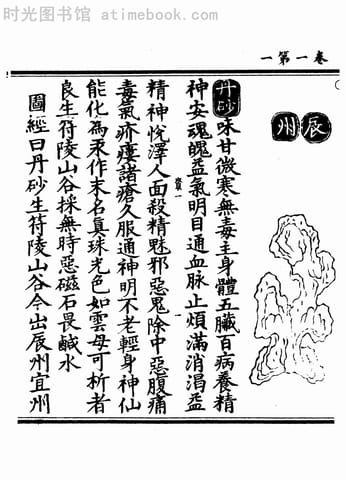 时光图书馆 - atimebook.com
卷一第一
辰州
丹砂味甘微寒無毒主身體五臟百病養精
神安魂魄益氣明目通血脉止煩滿消渴益
精神悅澤人面殺精魅邪惡鬼除中惡腹痛
毒氣疥瘻諸瘡久服通神明不老輕身神仙
能化為汞作末名真珠光色如雲母可析者
良生符陵山谷採無時惡磁石畏鹹水
圖經曰丹砂生符陵山谷今出辰州宜州